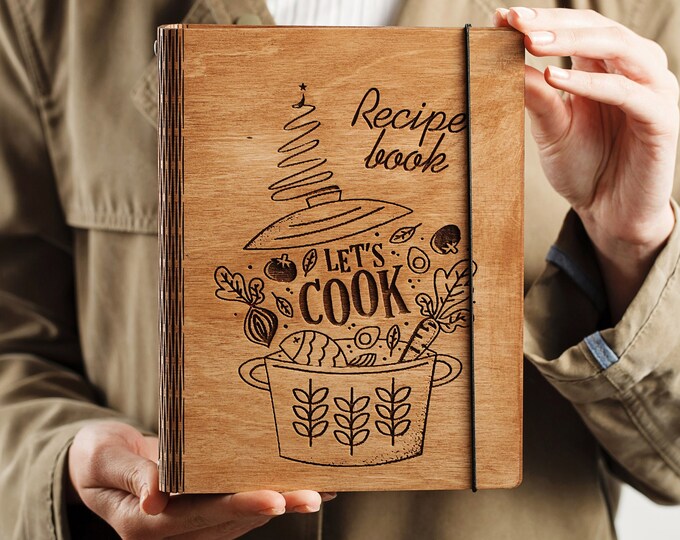 Recipe
book
LET'S
COOK